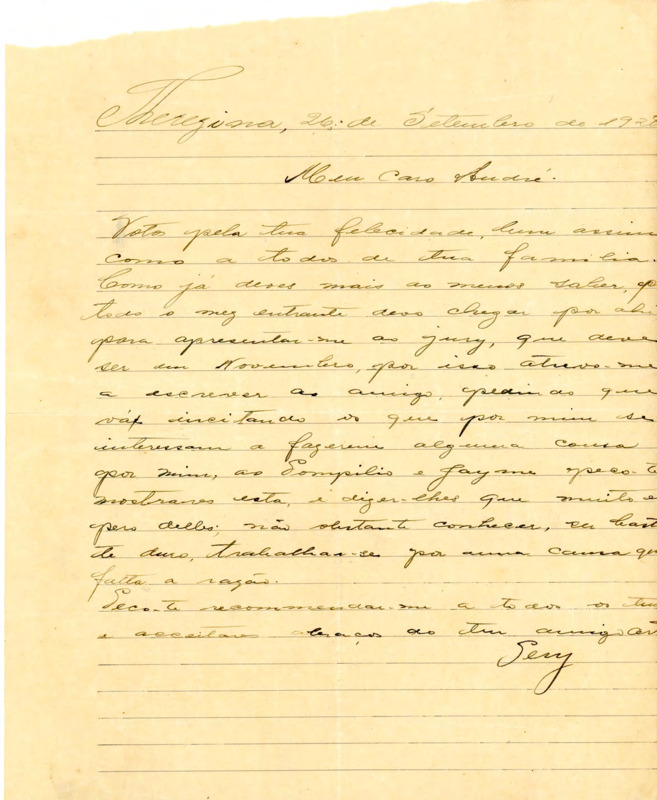 Therezina, 26, de Setembro de 192
Meu caro André.
Votos pela tua felecidade, bem assim
como a todos de tua familia.
Como já deves mais ao menos saber, q
todo o mez entrante devo chegar por ahi
para apresentar-me ao jury, que deve
ser em Novembro, por isso atrevo-me
a escrever ao amigo, pedindo que
vá incitando os que por mim se
interessam a fazerem alguma cousa
por mim, ao Pompilio e Jayme peço-t
mostrares esta, e dizer-lhes que muito e
pero delles; não obstante conhecer, ser bast
te duro, trabalhar-se por uma causa que
falta a razão.
Peço-te recommendar-me a todos os teu
e acceitares abraços do teu amigo